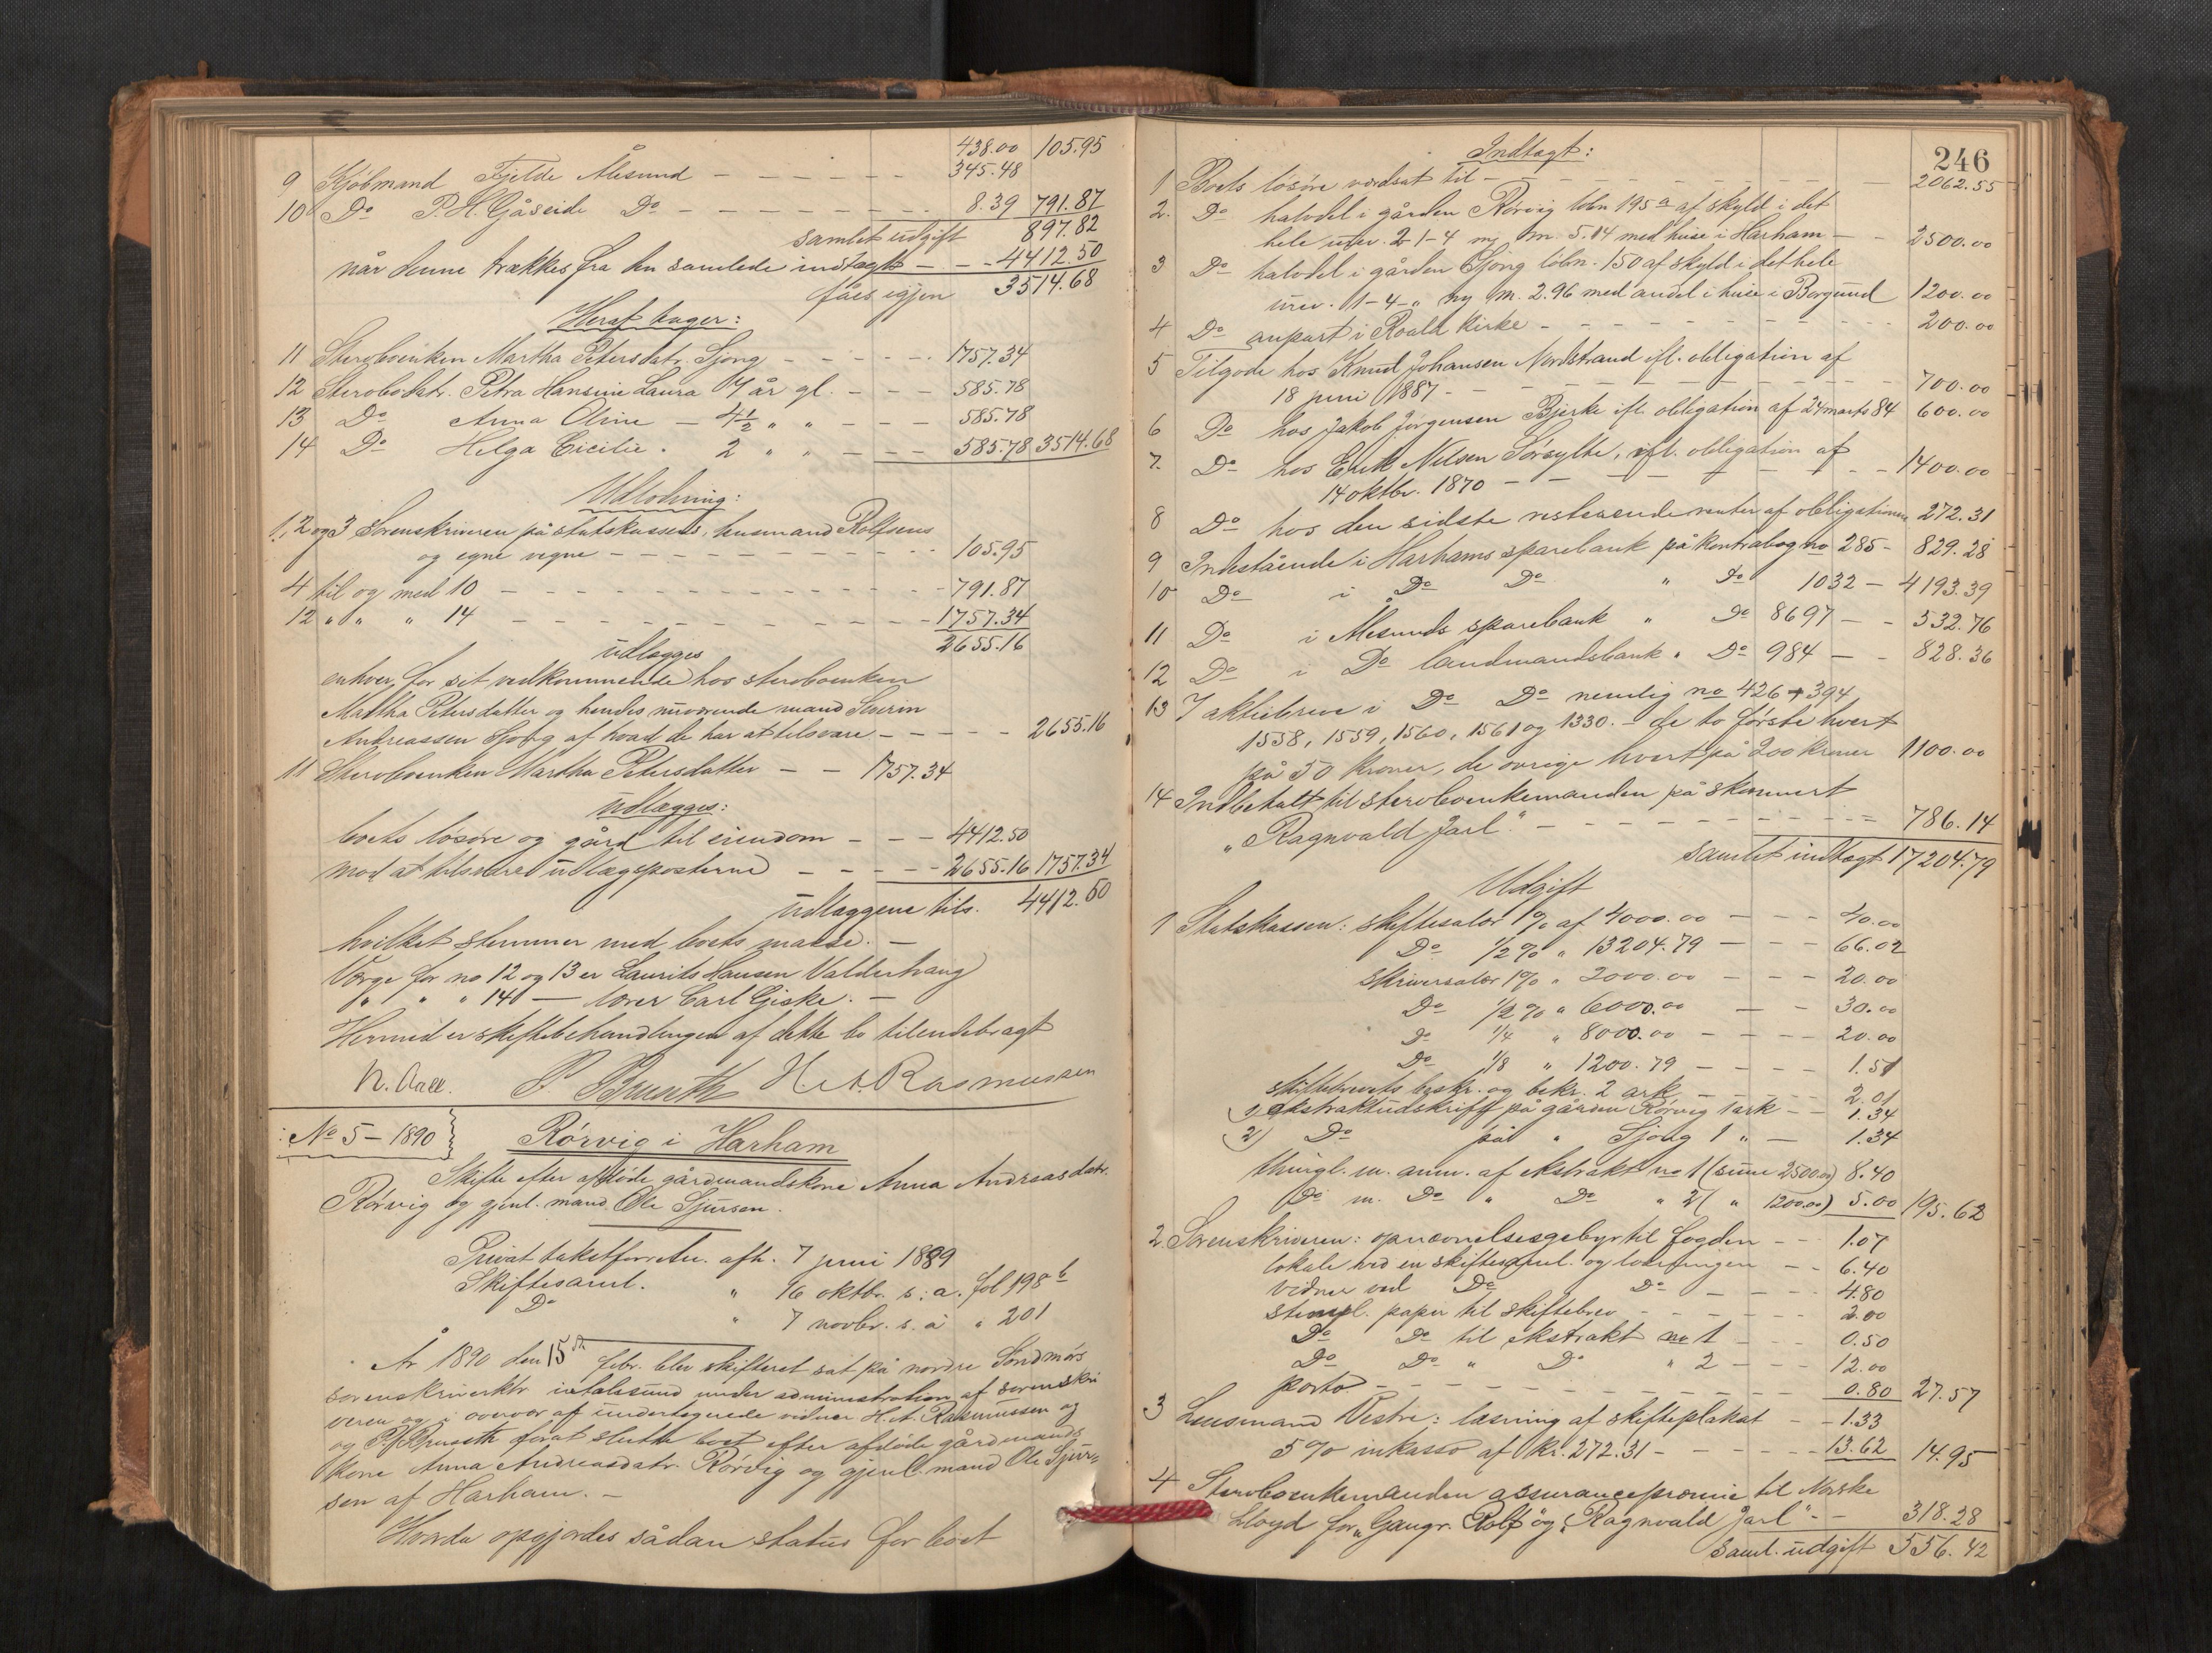 438.00 105.95
9 Kjöbmand Fjelde Ålesund — 345.48
10 Do P. H. Gåseide Do — 8.39 791.87
samlet udgift 897.82
når denne trækkes fra den samlede indtægt — 4412.50
fåes igjen 3514.68
Heraf tager:
11 Stervboenken Martha Petersdatr. Sjong — 1757.34
12 Stervbodatr. Petra Hansine Laura 7 år gl. — 585.78
13 Do Anna Oline — 4½ " " — 585.78
14 Do Helga Cicilie . 2 " " — 585.78 3514.68
Udlodning:
1, 2 og 3 Sorenskriveren på statskassens, husmand Rolfsens
og egne vegne — 105.95
4 til og med 10 — 791.87
12 " " " 14 — 1757.34
2655.16
udlægges
enhver for sit vedkommende hos stervboenken
Martha Petersdatter og hendes nuværende mand Severin
Andreassen Sjong af hvad de har at tilsvare — 2655.16
11 Stervboenken Martha Petersdatter — 1757.34
udlægges:
boets lösöre og gård til eiendom — 4412.50
mod at tilsvare udlægsposterne — 2655.16 1757.34
udlæggene tils. 4412.50
hvilket stemmer med boets masse. —
Værge for no 12 og 13 er Laurits Hansen Valderhaug
" " " 14 — lærer Carl Giske. —
Hermed er skiftebehandlingen af dette bo tilendebragt
N. Aall. P. Brunth H. A. Rasmussen
No 5 — 1890
Rörvig i Harham
Skifte efter afdöde gårdmandskone Anna Andreasdatr.
Rörvig og gjenl. mand Ole Sjursen.
Privat takstforretn. afh. 7 juni 1889
Skiftesaml. " 16 oktbr. s: a. fol 198 b
Do " 7 novbr. s. a " 201
År 1890 den 15de febr. blev skifteret sat på nordre Söndmörs
sorenskriverktr i Aalesund under administration af sorenskri
veren og i overvær af undertegnede vidner H. A. Rasmussen og
og P. Brunth forat slutte boet efter afdöde gårdmands
kone Anna Andreasdatr. Rörvig og gjenl. mand Ole Sjur-
sen af Harham. —
Hvorda opgjordes sådan status for boet
246
Indtægt:
1 Boets lösöre værdsat til — 2062.55
2. Do halvdel i gården Rörvig löbn 195a af skyld i det
hele urev. 2-1-4 ny m. 5.14 med huse i Harham — 2500.00
3 Do halvdel i gården Sjong löbn. 150 af skyld i det hele
urev. 1-4-" ny m. 2.96 med andel i huse i Borgund 1200.00
4 Do anpart i Roald kirke — 200.00
5 Tilgode hos Knud Johansen Nordstrand ifl. obligation af
18 juni 1887 — 700.00
6 Do hos Jakob Jörgensen Bjerke ifl. obligation af 24 marts 84 600.00
7. Do hos Erik Nilsen Sörsylte, ifl. obligation af
14 oktbr. 1870 — 1400.00
8 Do hos den sidste resterende renter af obligationen 272.31
9 Indestående i Harhams sparebank på kontrabog no 285 — 829.28
10 Do i Do Do " Do 1032 — 4193.39
11 Do i Ålesunds sparebank " Do 8697 — 532.76
12 Do i Do landmandsbank " Do 984 — 828.36
13 7 aktiebreve i Do Do nemlig no 426 + 394,
1558, 1559, 1560, 1561 og 1330. — de to förste hvert
på 50 kroner, de övrige hvert på 200 kroner 1100.00
14 Indbetalt til stervboenkemanden på skonnert
"Ragnvald Jarl" — 786.14
samlet indtægt 17204.79
Udgift
1 Statskassen: skiftesalær 1% af 4000.00 — 40.00
Do ½ % " 13204.79 — 66.02
skriversalær 1% " 2000.00 — 20.00
Do ½ % " 6000.00 — 30.00
Do ¼ " 8000.00 — 20.00
Do ⅛ " 1200.79 — 1.51
skiftebrevets beskr. og bekr. 2 ark — 2.01
1) ekstraktudskrift på gården Rörvig 1 ark — 1.34
2) Do på " Sjong 1 " — 1.34
thingl. m. anm. af ekstrakt no 1 (sum 2500.00) 8.40
Do m. Do " Do " 2 ( " 1200.00) 5.00 195.62
2. Sorenskriveren: opnævnelsesgebyr til fogden — 1.07
lokale ved en skiftesaml. og lodningen — 6.40
vidner ved Do Do — 4.80
stempl. papir til skiftebrev — 2.00
Do Do til ekstrakt no 1 — 0.50
Do Do " Do " 2 — 12.00
porto — 0.80 27.57
3 Lensmand Vestre: læsning af skifteplakat — 1.33
5% inkasso af kr. 272.31 — 13.62 14.95
4 Stervboenkemanden assurancepræmie til Norske
Lloyd for "Gangr. Rolf" og "Ragnvald Jarl" — 318.28
saml. udgift 556.42